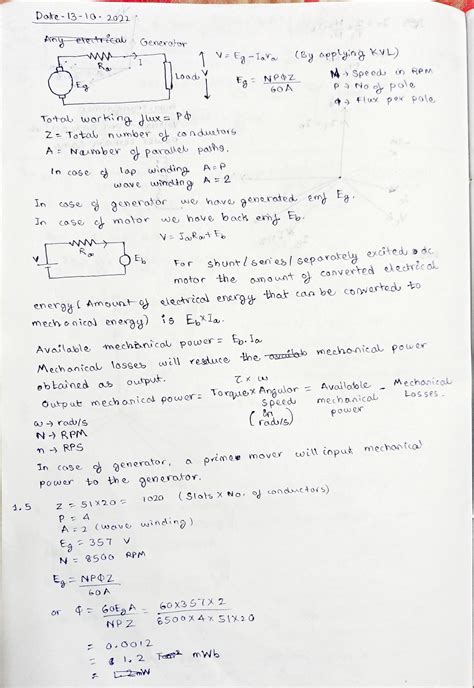 Date-13-10-2022
Any electrical Generator
Ra I
Eg Load V
V = Eg-Iara (By applying KVL)
Eg = NPΦZ / 60A
N → Speed in RPM
P → No of pole
Φ → Flux per pole
Total working flux = PΦ
Z = Total number of conductors
A = Number of parallel paths.
In case of lap winding A=P
wave winding A=2
In case of generator we have generated emf Eg.
In case of motor we have back emf Eb.
V = IaRa+Eb
V Ra Eb
For shunt/series/separately excited dc
motor the amount of converted electrical
energy (Amount of electrical energy that can be converted to
mechanical energy) is Eb×Ia.
Available mechanical power = Eb.Ia
Mechanical losses will resduce the availab mechanical power
obtained as output.
τ × ω
Output mechanical power = Torque × Angular Speed (in rad/s) = Available mechanical power - Mechanical Losses.
ω → rad/s
N → RPM
n → RPS
In case of generator, a prime mover will input mechanical
power to the generator.
1.5 Z = 51×20 = 1020 (Slots × No. of conductors)
P = 4
A = 2 (wave winding)
Eg = 357 V
N = 8500 RPM
Eg = NPΦZ / 60A
or Φ = 60EgA / NPZ = 60×357×2 / 8500×4×51×20
= 0.0012
= 1.2 mWb
= 1.2mW